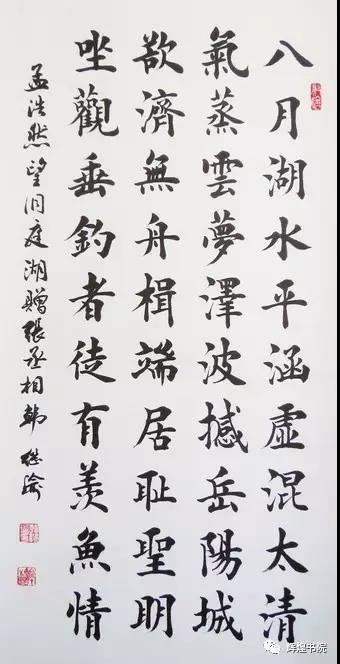 八月湖水平涵虛混太清
氣蒸雲夢澤波撼岳陽城
欲濟無舟楫端居耻聖明
坐觀垂釣者徒有羨魚情
孟浩然望洞庭湖贈張丞相韩继瑜
辉煌书院